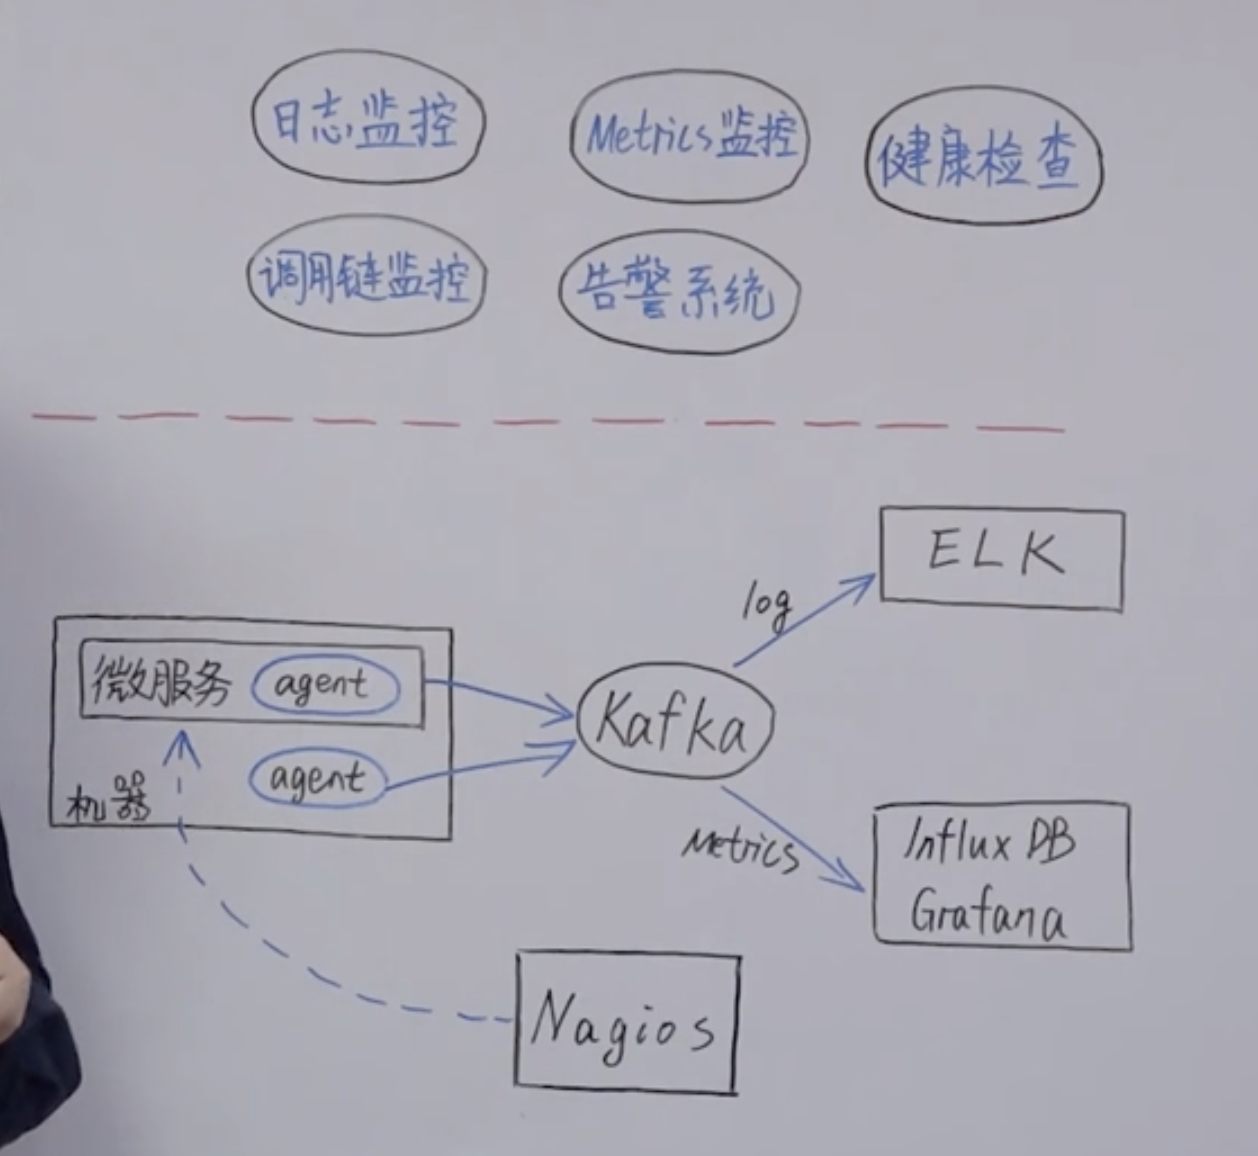 日志监控
Metrics监控
健康检查
调用链监控
告警系统
ELK
log
微服务
agent
Kafka
agent
机器
Metrics
Influx DB
Grafana
Nagios